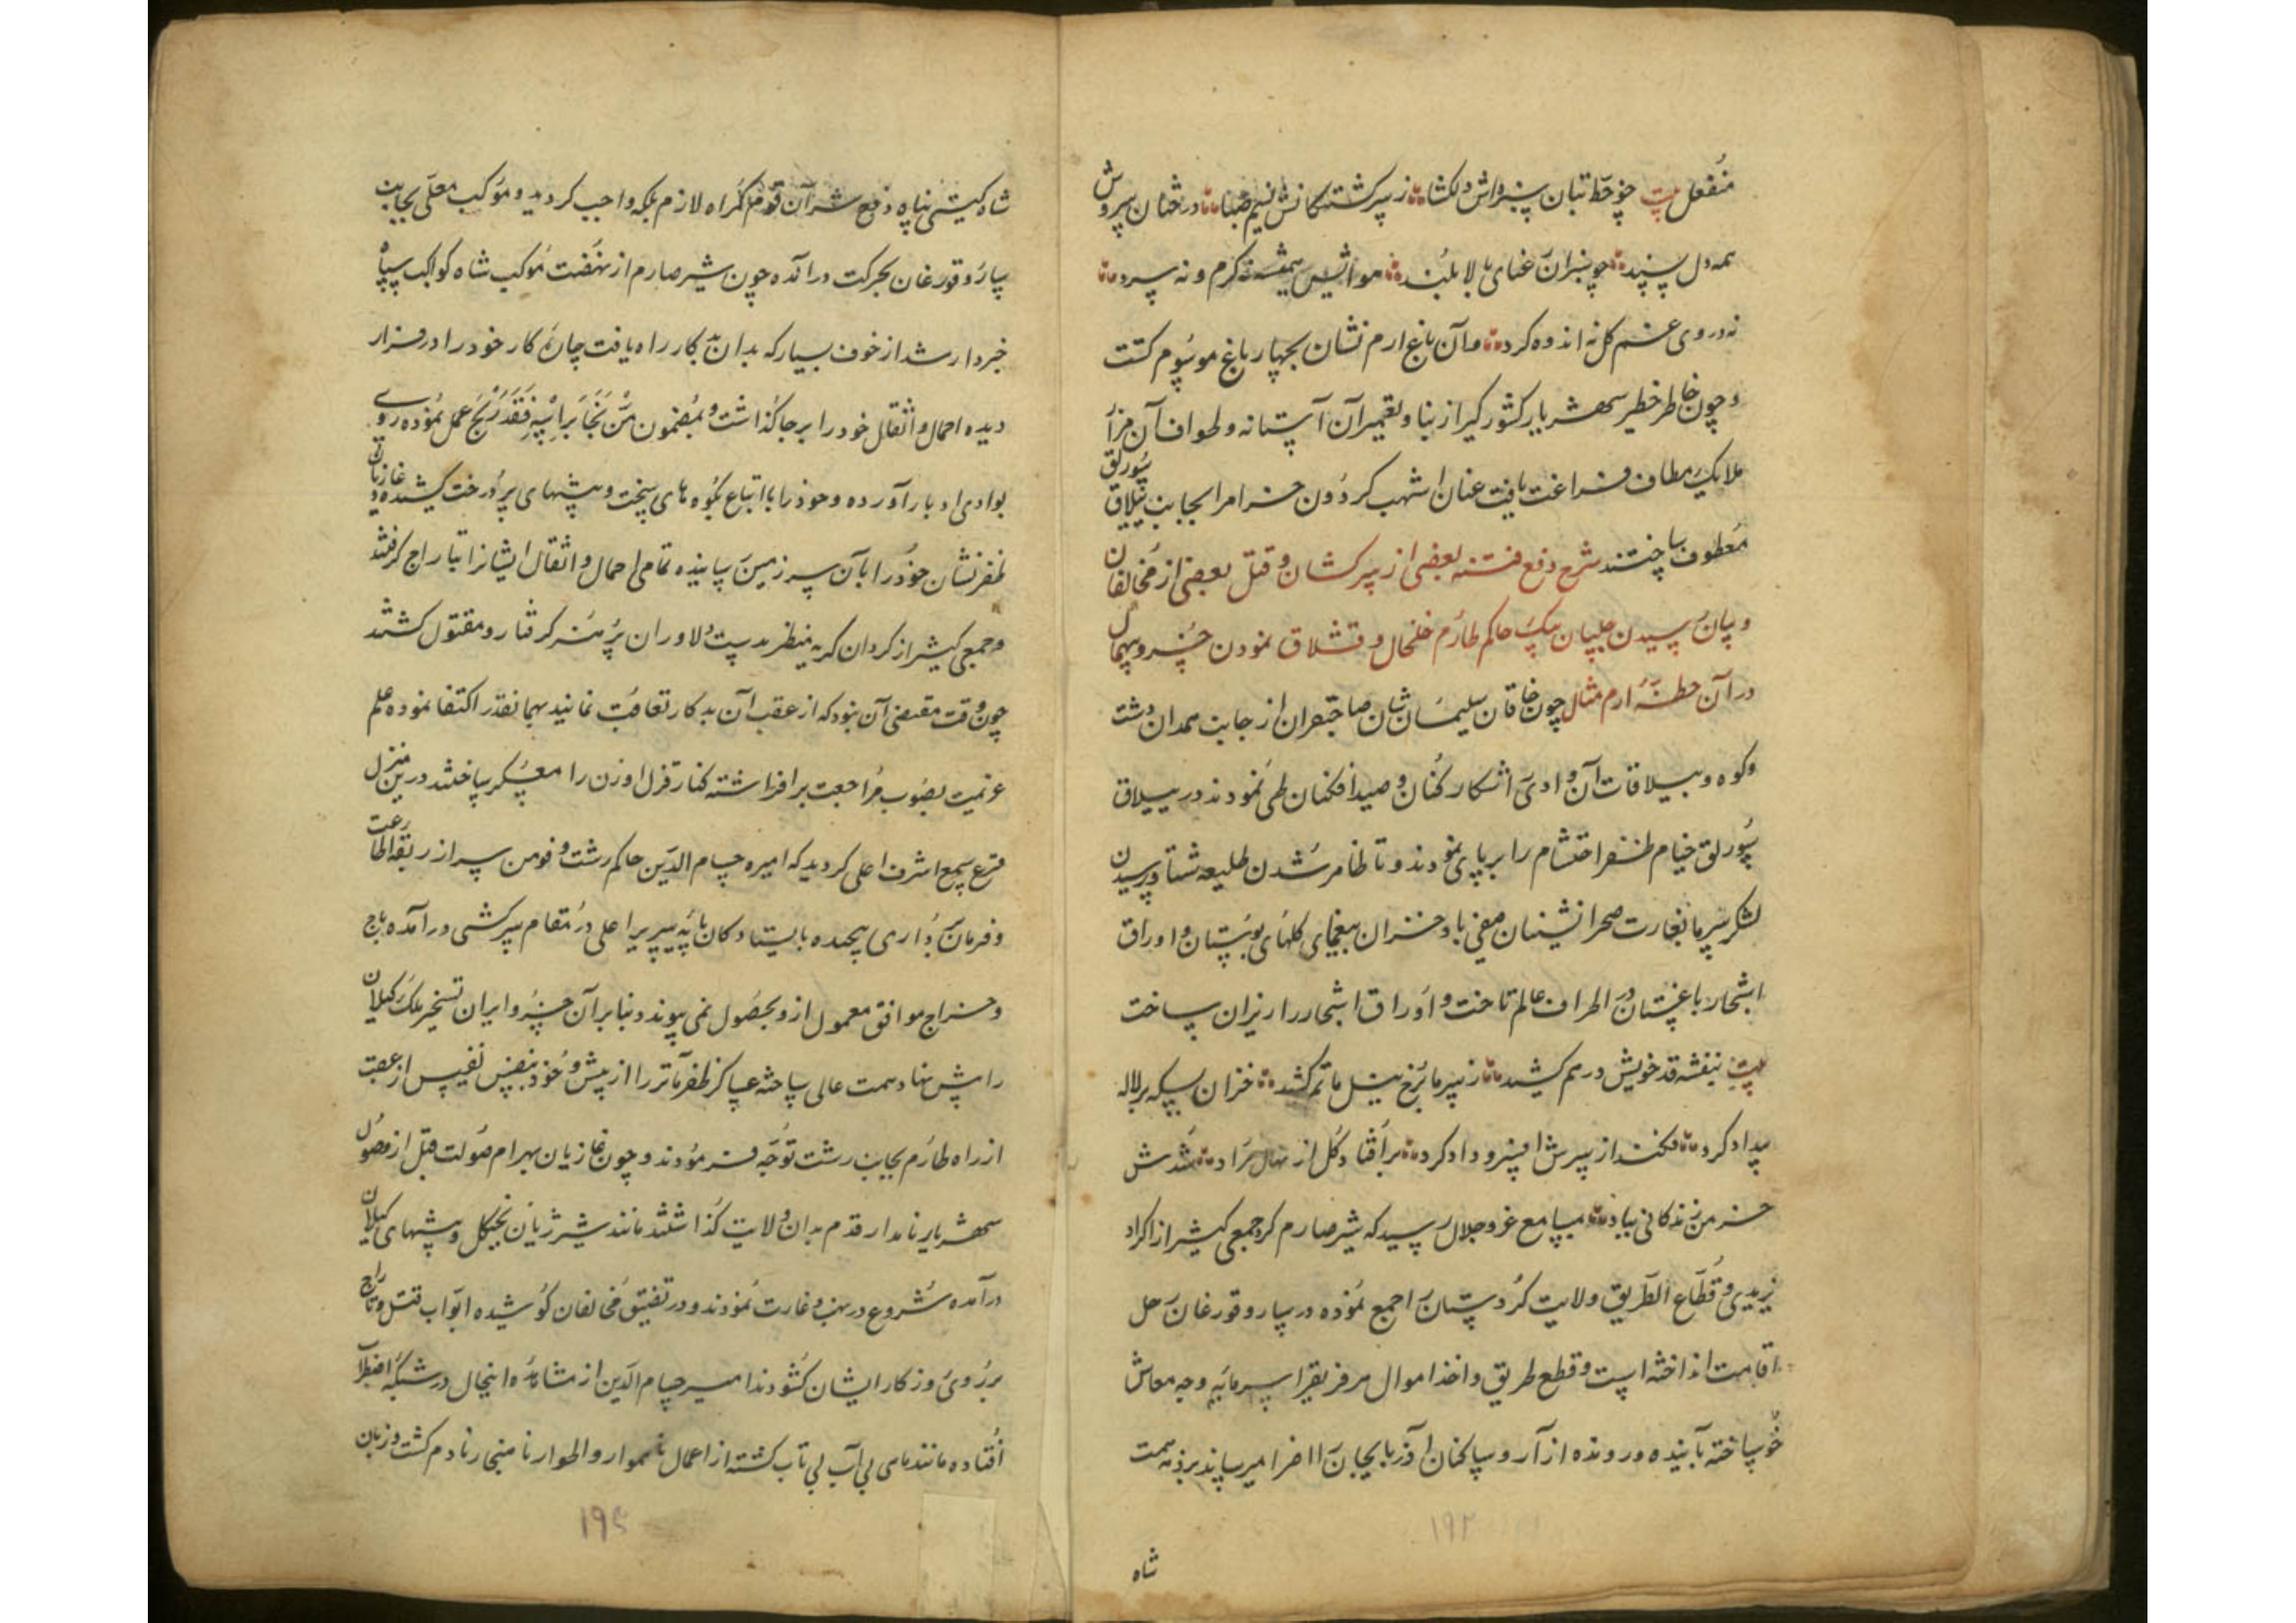 منفعل بیت چو خط بتان سبزه‌اش دلکشا ز سرکشتکانش نسیم صبا درختان سروش
همه دل پسند چو سبزان رعنای بالا بلند هوایش همیشه نه کرم و نه سرد
نه در وی غم کل نه اندوه کرد و آن باغ ارم نشان بچهار باغ موسوم کشت
و چون خاطر خطیر شهریار کشورکیر از بنا و تعمیر آن آستانه و طواف آن مزار
ملایک مطاف فراغت یافت عنان اشهب کردون خرام را بجانب ییلاق سورلق
معطوف ساختند شرح دفع فتنه بعضی از سرکشان و قتل بعضی از مخالفان
و بیان رسیدن چلپان بیک حاکم طارم خلخال و قشلاق نمودن خسرو بیهمال
در آن خطهٔ ارم مثال چون خاقان سلیمان شان صاحبقران از جانب همدان دشت
و کوه و ییلاقات آن وادی اشکار کنان و صید افکنان طی نمودند در ییلاق
سورلق خیام ظفر احتشام را بر پای نمودند و تا ظاهر شدن طلیعه شتا و رسیدن
لشکر سرما بغارت صحرا نشینان صفی باد خزان بیغمای کلهای بوستان و اوراق
اشجار باغستان در اطراف عالم تاخت و اوراق اشجار را ریزان ساخت
بیت بنفشه قد خویش در هم کشید ز سرما برخ نیل ماتم کشید خزان بسکه بر لاله
بیداد کرد فکند از سرش افسر و داد کرد بر افتاد کل از نهال مراد شدش
خرمن زندکانی بباد بمسامع عز و جلال رسید که شیر صارم کرد جمعی کثیر از اکراد
یزیدی و قطاع الطریق ولایت کردستان را جمع نموده در سارو قورغان رحل
اقامت انداخته است و قطع طریق و اخذ اموال هر فریق را سرمایه وجه معاش
خود ساخته آینده و رونده از آر و ساکنان آذربایجان را ضرر میرساند بر ذمه همت
شاه
۱۹۲
شاه کیتی پناه دفع شر آن قوم کمراه لازم بلکه واجب کردید و موکب معلی بجانب
سارو قورغان بحرکت درآمده چون شیر صارم از نهضت موکب شاه کواکب سپاه
خبردار شد از خوف بسیار که بدان بد کار راه یافت چاره کار خود را در فرار
دیده احمال و اثقال خود را بر جا کذاشت و بمضمون من نجا براسه فقد ربح عمل نموده روی
بوادی ادبار آورده و خود را با اتباع بکوه های سخت و بیشهای پر درخت کشیده و غازیان
ظفر نشان خود را بآن سرزمین رسانیده تمامی احمال و اثقال ایشانرا بتاراج کرفتند
و جمعی کثیر از کردان کریه منظر بدست دلاوران پر هنر کرفتار و مقتول کشتند
چون وقت مقتضی آن نبود که از عقب آن بد کار تعاقب نمایند بهمانقدر اکتفا نموده علم
عزیمت بصوب مراجعت بر افراشته کنار قزل اوزن را معسکر ساختند درین منزل
قرع سمع اشرف اعلی کردید که امیره حسام الدین حاکم رشت و فومن سر از ربقه اطاعت
و فرمان برداری پیچیده با ایستادکان پایه سریر اعلی در مقام سرکشی درآمده باج
و خراج موافق معمول ازو بحصول نمی پیوندد بنا بر آن خسرو ایران تسخیر ملک کیلان
را پیش نهاد همت عالی ساخته عساکر ظفر مآثر را از پیش و خود بنفس نفیس از عقب
از راه طارم بجانب رشت توجه فرمودند و چون غازیان بهرام صولت قبل از وصول
شهریار نامدار قدم بدان ولایت کذاشتند مانند شیر ژیان بجنکل و بیشهای کیلان
درآمده شروع در نهب و غارت نمودند و در تفتیق مخالفان کوشیده ابواب قتل و تاراج
بر روی روزکار ایشان کشودند امیر حسام الدین از مشاهده اینحال در شبکه اضطراب
افتاده مانند ماهی بی آب بی تاب کشته از اعمال ناهموار و اطوار نا هنجار نادم کشت و زبان
۱۹۴